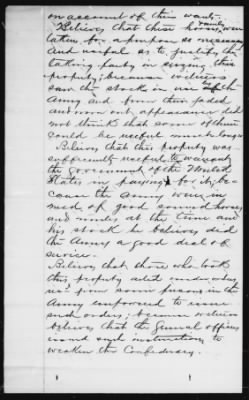 on account of their wants.
Believes that these horses were
taken for a purpose so necessary
and useful as to justify the
taking party in seizing this
property; because witness
saw the stock in use by the
Army and from their jaded
and worn out appearance did
not think that some of them
could be useful much longer
Believes that this property was
sufficiently useful to warrant
the Government of the United
States in paying for it, be-
cause the army were in
need of good sound horses
and mules at the time and
his stock he believes did
the Army a good deal of
service.
Believes that those who took
this property acted under orders
from some persons in the
Army empowered to issue
such orders; because witness
believes that the general officers
issued such instructions to
weaken the Confederacy.